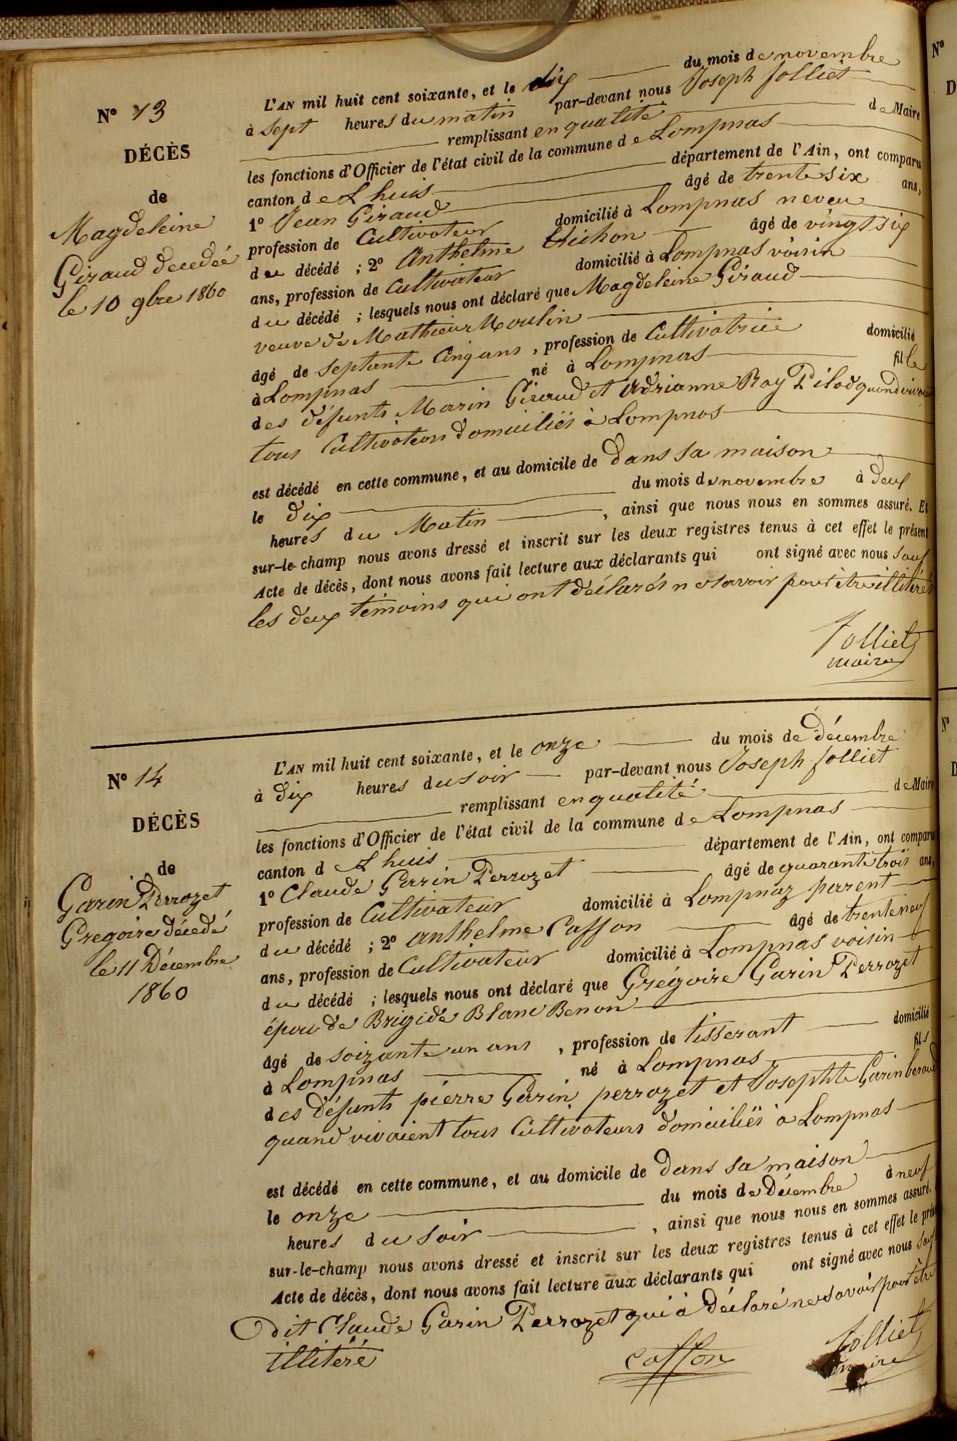 N° 13
DÉCÈS
de
Magdeleine
Giraud decedée
le 10 9bre 1860
L'AN mil huit cent soixante, et le dix du mois de novembre
à sept heures du matin par-devant nous Joseph Jolliet
remplissant en qualité de Maire
les fonctions d'Officier de l'état civil de la commune de Lompnas
canton de Lhuis département de l'Ain, ont comparu
1° Jean Giraud âgé de trente six ans,
profession de Cultivateur domicilié à Lompnas neveu
du décédé ; 2° Anthelme âgé de vingt six
ans, profession de Cultivateur domicilié à Lompnas voisin
du décédé ; lesquels nous ont déclaré que Magdeleine Giraud
veuve de Mathieu Moulin
âgé de septante cinq ans, profession de Cultivatrice domicilié
à Lompnas né à Lompnas fille
des défunts Marin Giraud et Adrianne Ray Pilod quand vivai
tous Cultivateurs domiciliés à Lompnas
est décédé en cette commune, et au domicile de dans sa maison
le dix du mois de novembre à deux
heures du Matin, ainsi que nous nous en sommes assuré. Et
sur-le-champ nous avons dressé et inscrit sur les deux registres tenus à cet effet le présent
Acte de décès, dont nous avons fait lecture aux déclarants qui ont signé avec nous sauf
les deux témoins qui ont déclarés ne savoir pour être illitérés
Jolliet
maire
N° 14
DÉCÈS
de
Garin Perrozet
Gregoire décedé
le 11 Décembre
1860
L'AN mil huit cent soixante, et le onze du mois de Décembre
à dix heures du soir par-devant nous Joseph Jolliet
remplissant en qualité de Maire
les fonctions d'Officier de l'état civil de la commune de Lompnas
canton de Lhuis département de l'Ain, ont comparu
1° Claude Gerrin Perrozet âgé de quarante trois ans,
profession de Cultivateur domicilié à Lompnaz parent
du décédé ; 2° Anthelme Caffon âgé de trente neuf
ans, profession de Cultivateur domicilié à Lompnas voisin
du décédé ; lesquels nous ont déclaré que Grégoire Garin Perrozet
épou de Brigide Blanc Benon
âgé de soizante un ans, profession de tisserant domicilié
à Lompnas né à Lompnas fils
des défunts pierre Garin perrozet et Josephte Garin beraud
quand vivaient tous Cultivateurs domiciliés à Lompnas
est décédé en cette commune, et au domicile de dans sa maison
le onze du mois de Décembre à neuf
heures du soir, ainsi que nous nous en sommes assuré.
sur-le-champ nous avons dressé et inscrit sur les deux registres tenus à cet effet le prés
Acte de décès, dont nous avons fait lecture aux déclarants qui ont signé avec nous sauf
dit Claude Garin Perrozet qui à Déclaré ne savoir pour être
illitéré
Caffon
Jolliet
maire